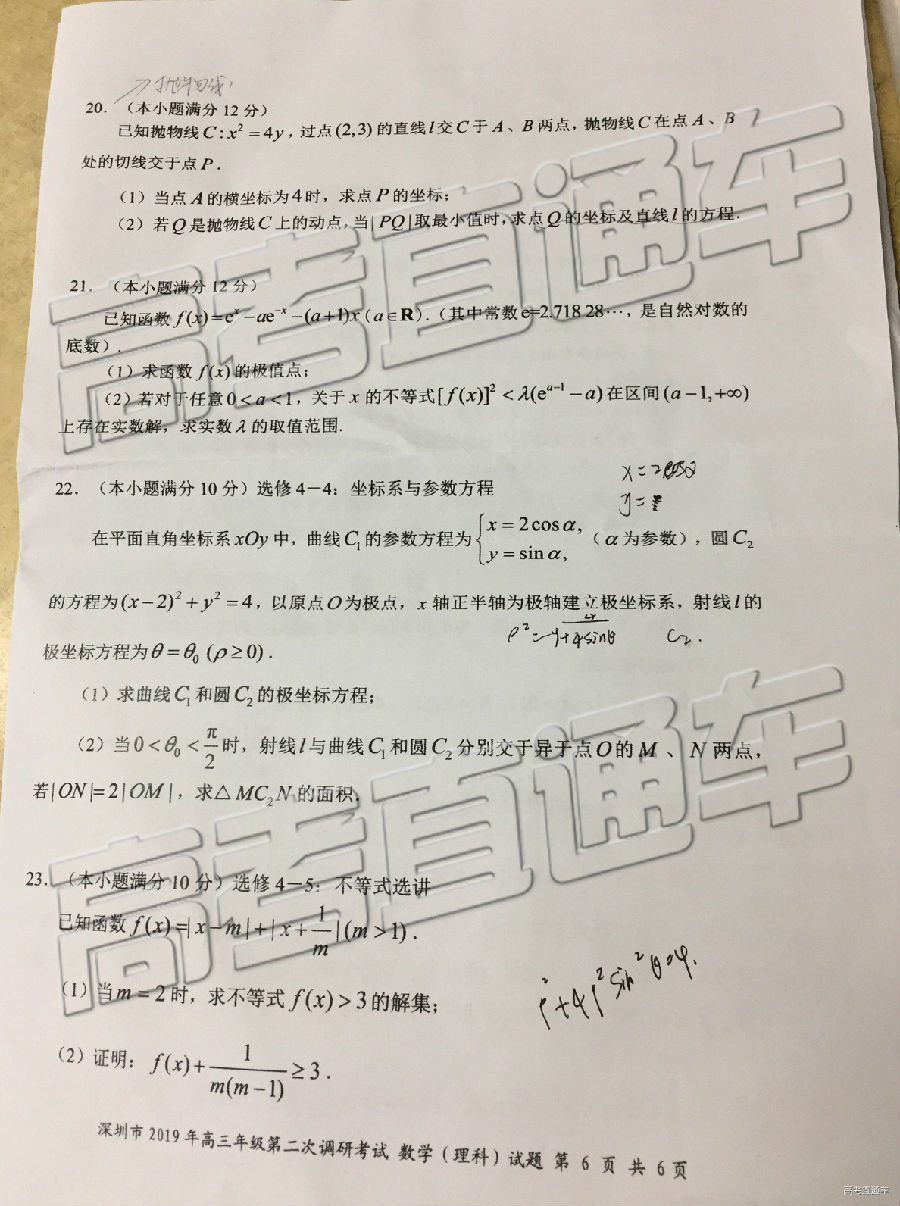 →抛物线
20.(本小题满分12分)
已知抛物线C:x²=4y,过点(2,3)的直线l交C于A、B两点,抛物线C在点A、B
处的切线交于点P.
(1)当点A的横坐标为4时,求点P的坐标;
(2)若Q是抛物线C上的动点,当|PQ|取最小值时,求点Q的坐标及直线l的方程.
21.(本小题满分12分)
已知函数f(x)=eˣ-ae⁻ˣ-(a+1)x(a∈R).(其中常数e=2.718 28…,是自然对数的
底数).
(1)求函数f(x)的极值点;
(2)若对于任意0<a<1,关于x的不等式[f(x)]²<λ(eᵃ⁻¹-a)在区间(a-1,+∞)
上存在实数解,求实数λ的取值范围.
x=2cosα
y=
22.(本小题满分10分)选修4-4:坐标系与参数方程
在平面直角坐标系xOy中,曲线C₁的参数方程为{x=2cosα, y=sinα,(α为参数),圆C₂
的方程为(x-2)²+y²=4,以原点O为极点,x轴正半轴为极轴建立极坐标系,射线l的
C₂.
极坐标方程为θ=θ₀(ρ≥0).
(1)求曲线C₁和圆C₂的极坐标方程;
(2)当0<θ₀<π/2时,射线l与曲线C₁和圆C₂分别交于异于点O的M、N两点,
若|ON|=2|OM|,求△MC₂N的面积.
23.(本小题满分10分)选修4-5:不等式选讲
已知函数f(x)=|x-m|+|x+1/m|(m>1).
(1)当m=2时,求不等式f(x)>3的解集;
(2)证明:f(x)+1/m(m-1)≥3.
深圳市2019年高三年级第二次调研考试 数学(理科)试题 第 6 页 共 6 页
高考直通车
高考直通车
高考直通车